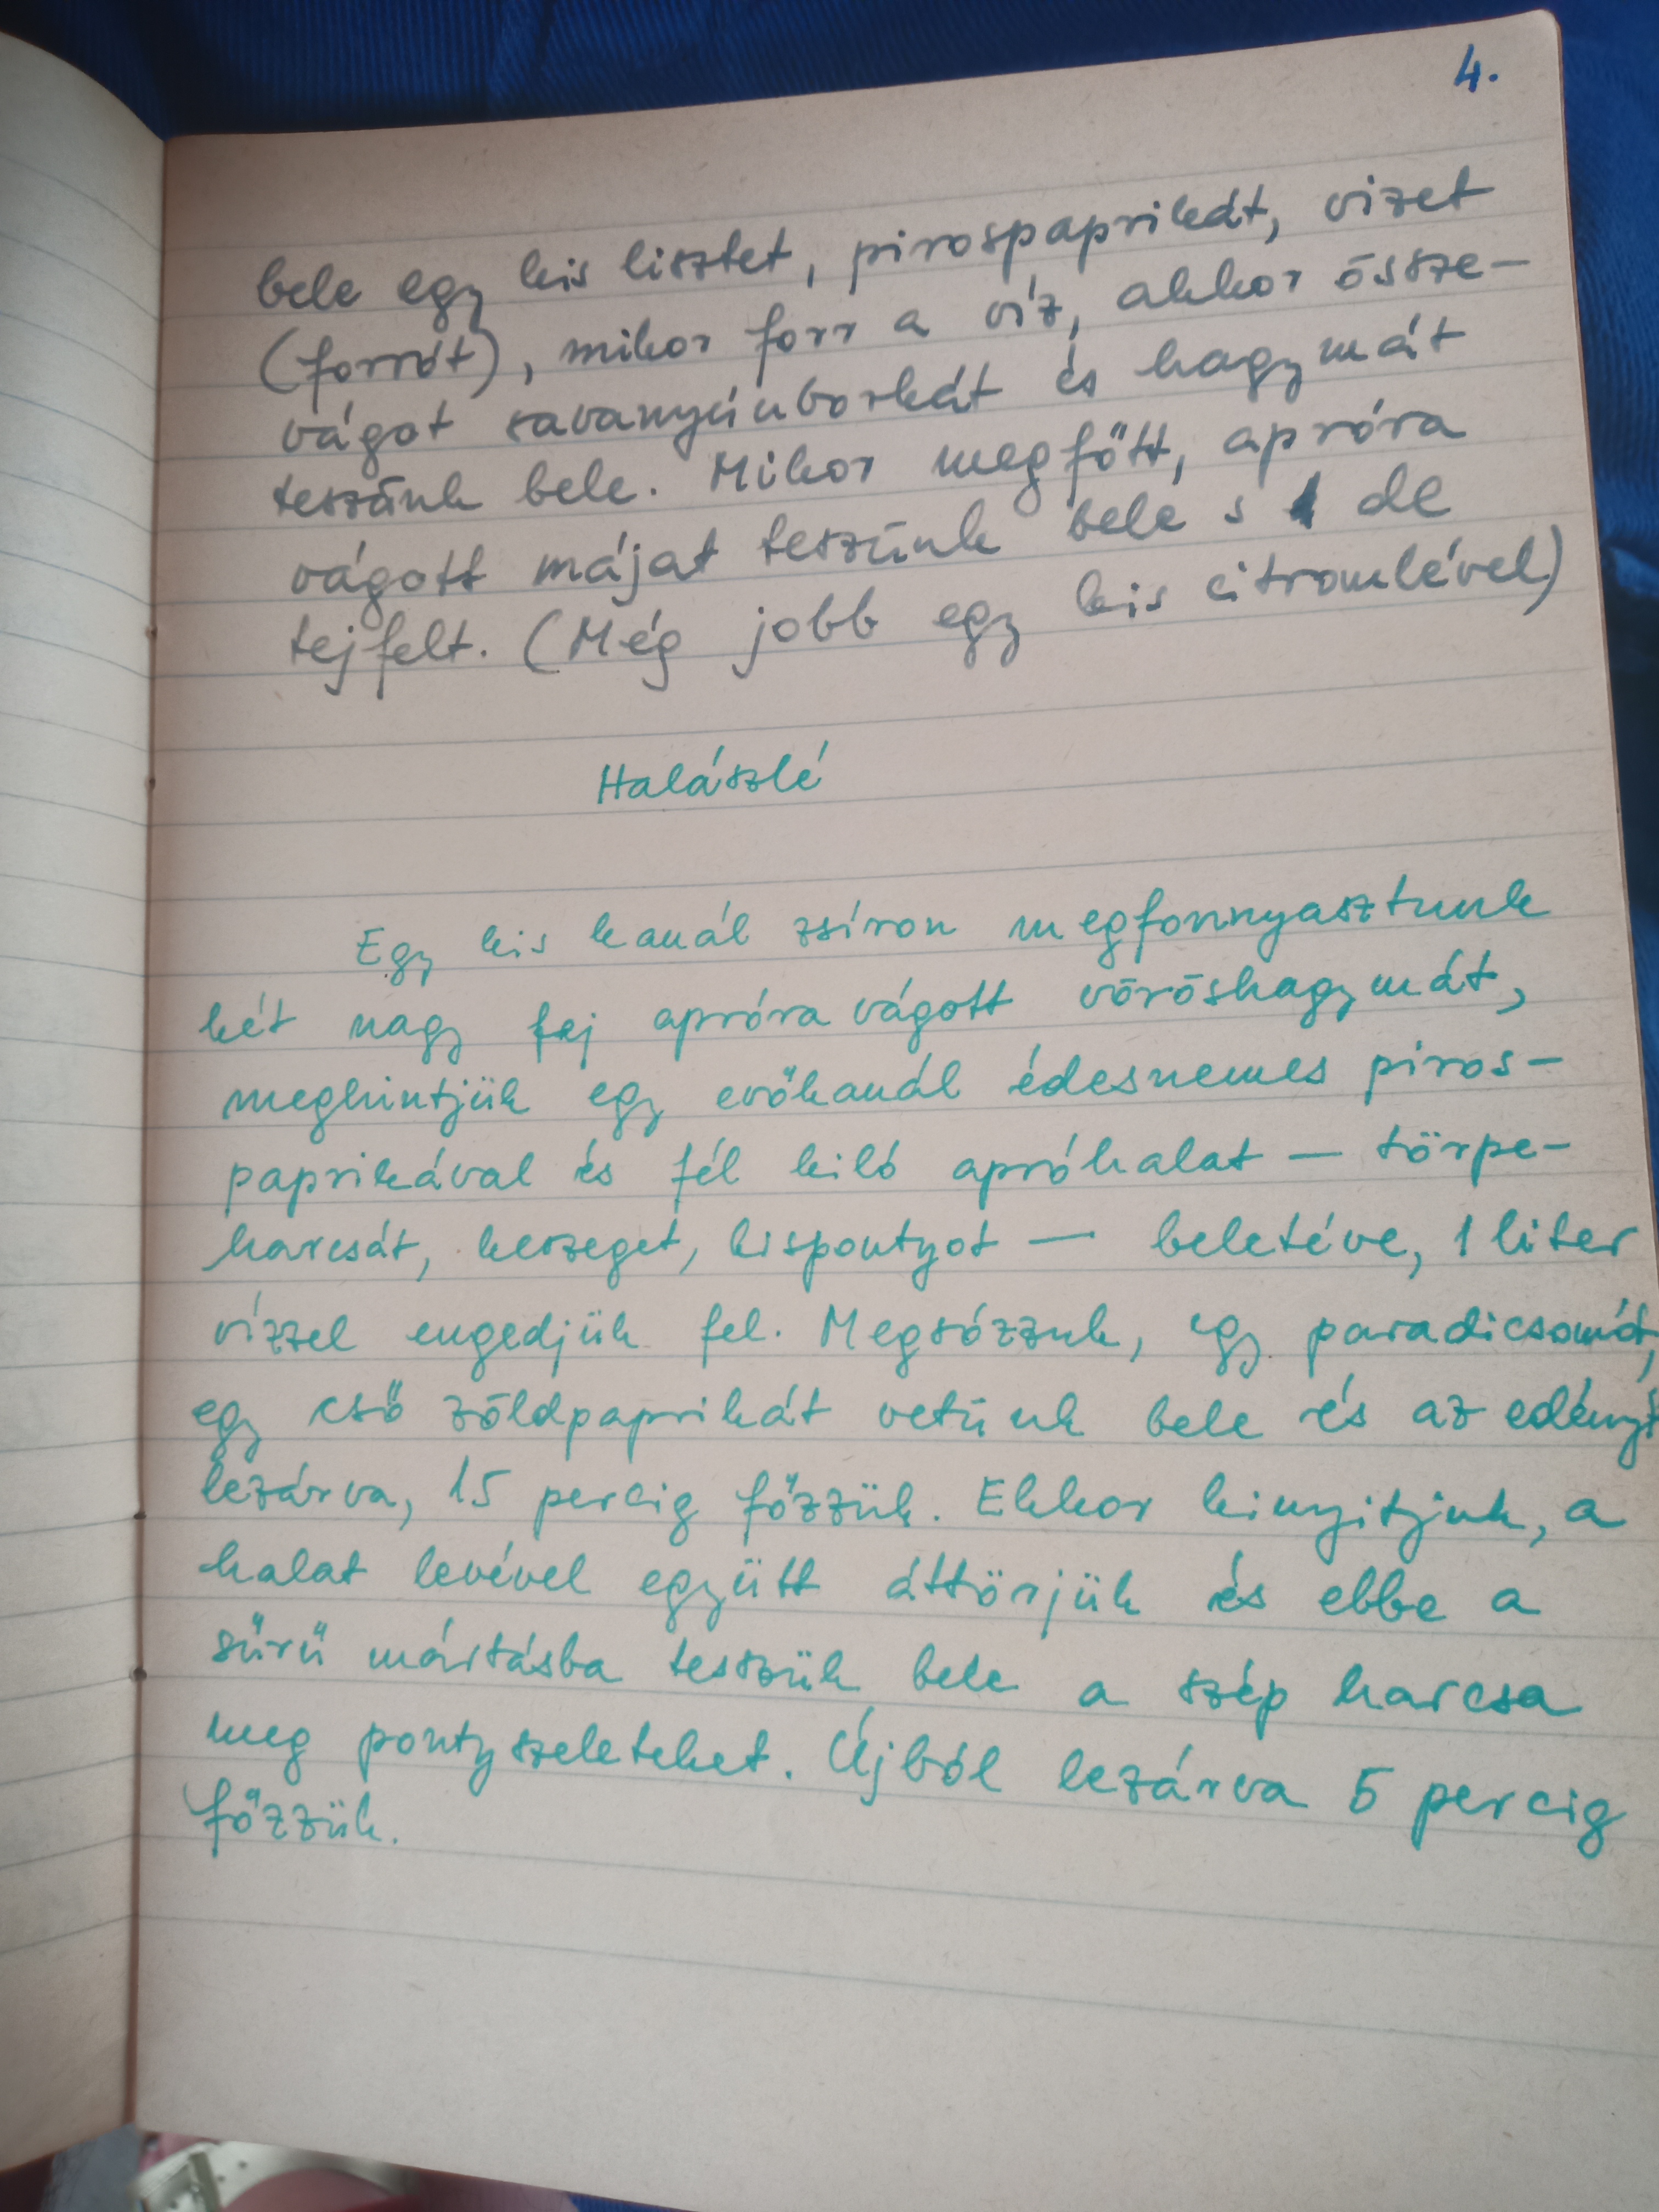 4.
bele egy kis lisztet, pirospaprikát, vizet
(forrót), mikor forr a víz, akkor össze-
vágot savanyúuborkát és hagymát
teszünk bele. Mikor megfőtt, apróra
vágott májat teszünk bele s 1 dl
tejfelt. (Még jobb egy kis citromlével)
Halászlé
Egy kis kanál zsíron megfonnyasztunk
két nagy fej apróra vágott vöröshagymát,
meghintjük egy evőkanál édesnemes piros-
paprikával és fél kiló apróhalat — törpe-
harcsát, keszeget, kispontyot — beletéve, 1 liter
vízzel engedjük fel. Megsózzuk, egy paradicsomót,
egy cső zöldpaprikát vetünk bele és az edényt
lezárva, 15 percig főzzük. Ekkor kinyitjuk, a
halat levével együtt áttörjük és ebbe a
sűrű mártásba tesszük bele a szép harcsa
meg pontyszeleteket. Újból lezárva 5 percig
főzzük.